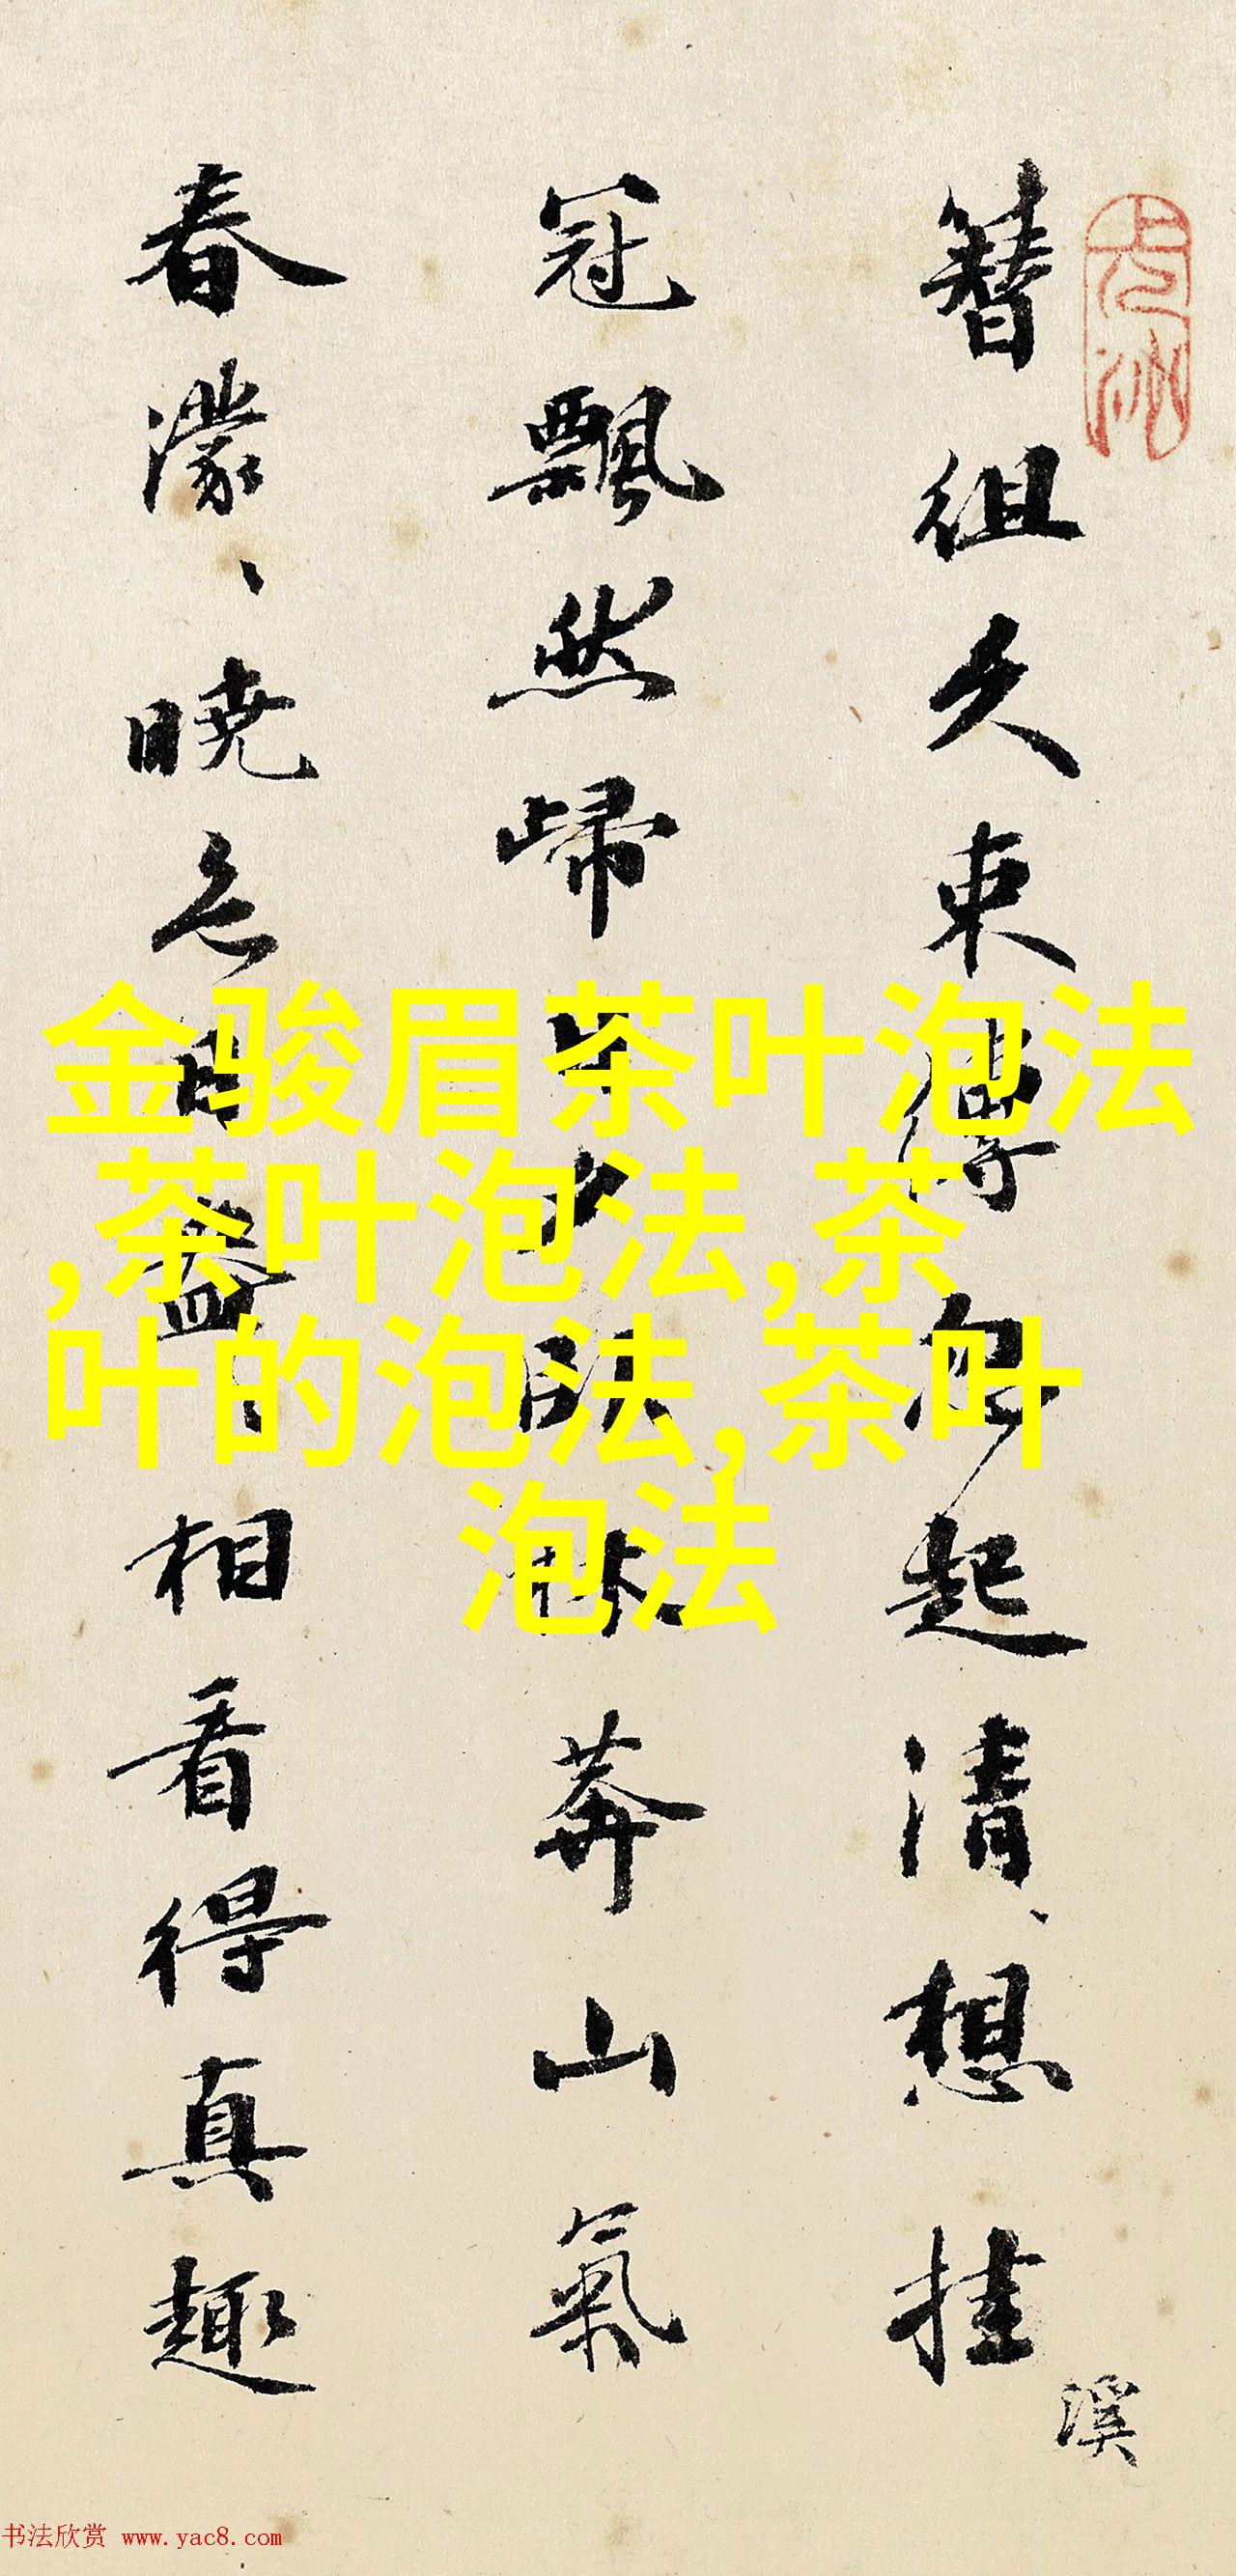 簪组久束缚忽起清、想挂
溪
冠飘然歸
臥林莽山氣
春濛、暁色
相看得真趣
金骏眉茶叶泡法
,茶叶泡法,茶
叶的泡法,茶叶
泡法
书法欣赏 www.yac8.com